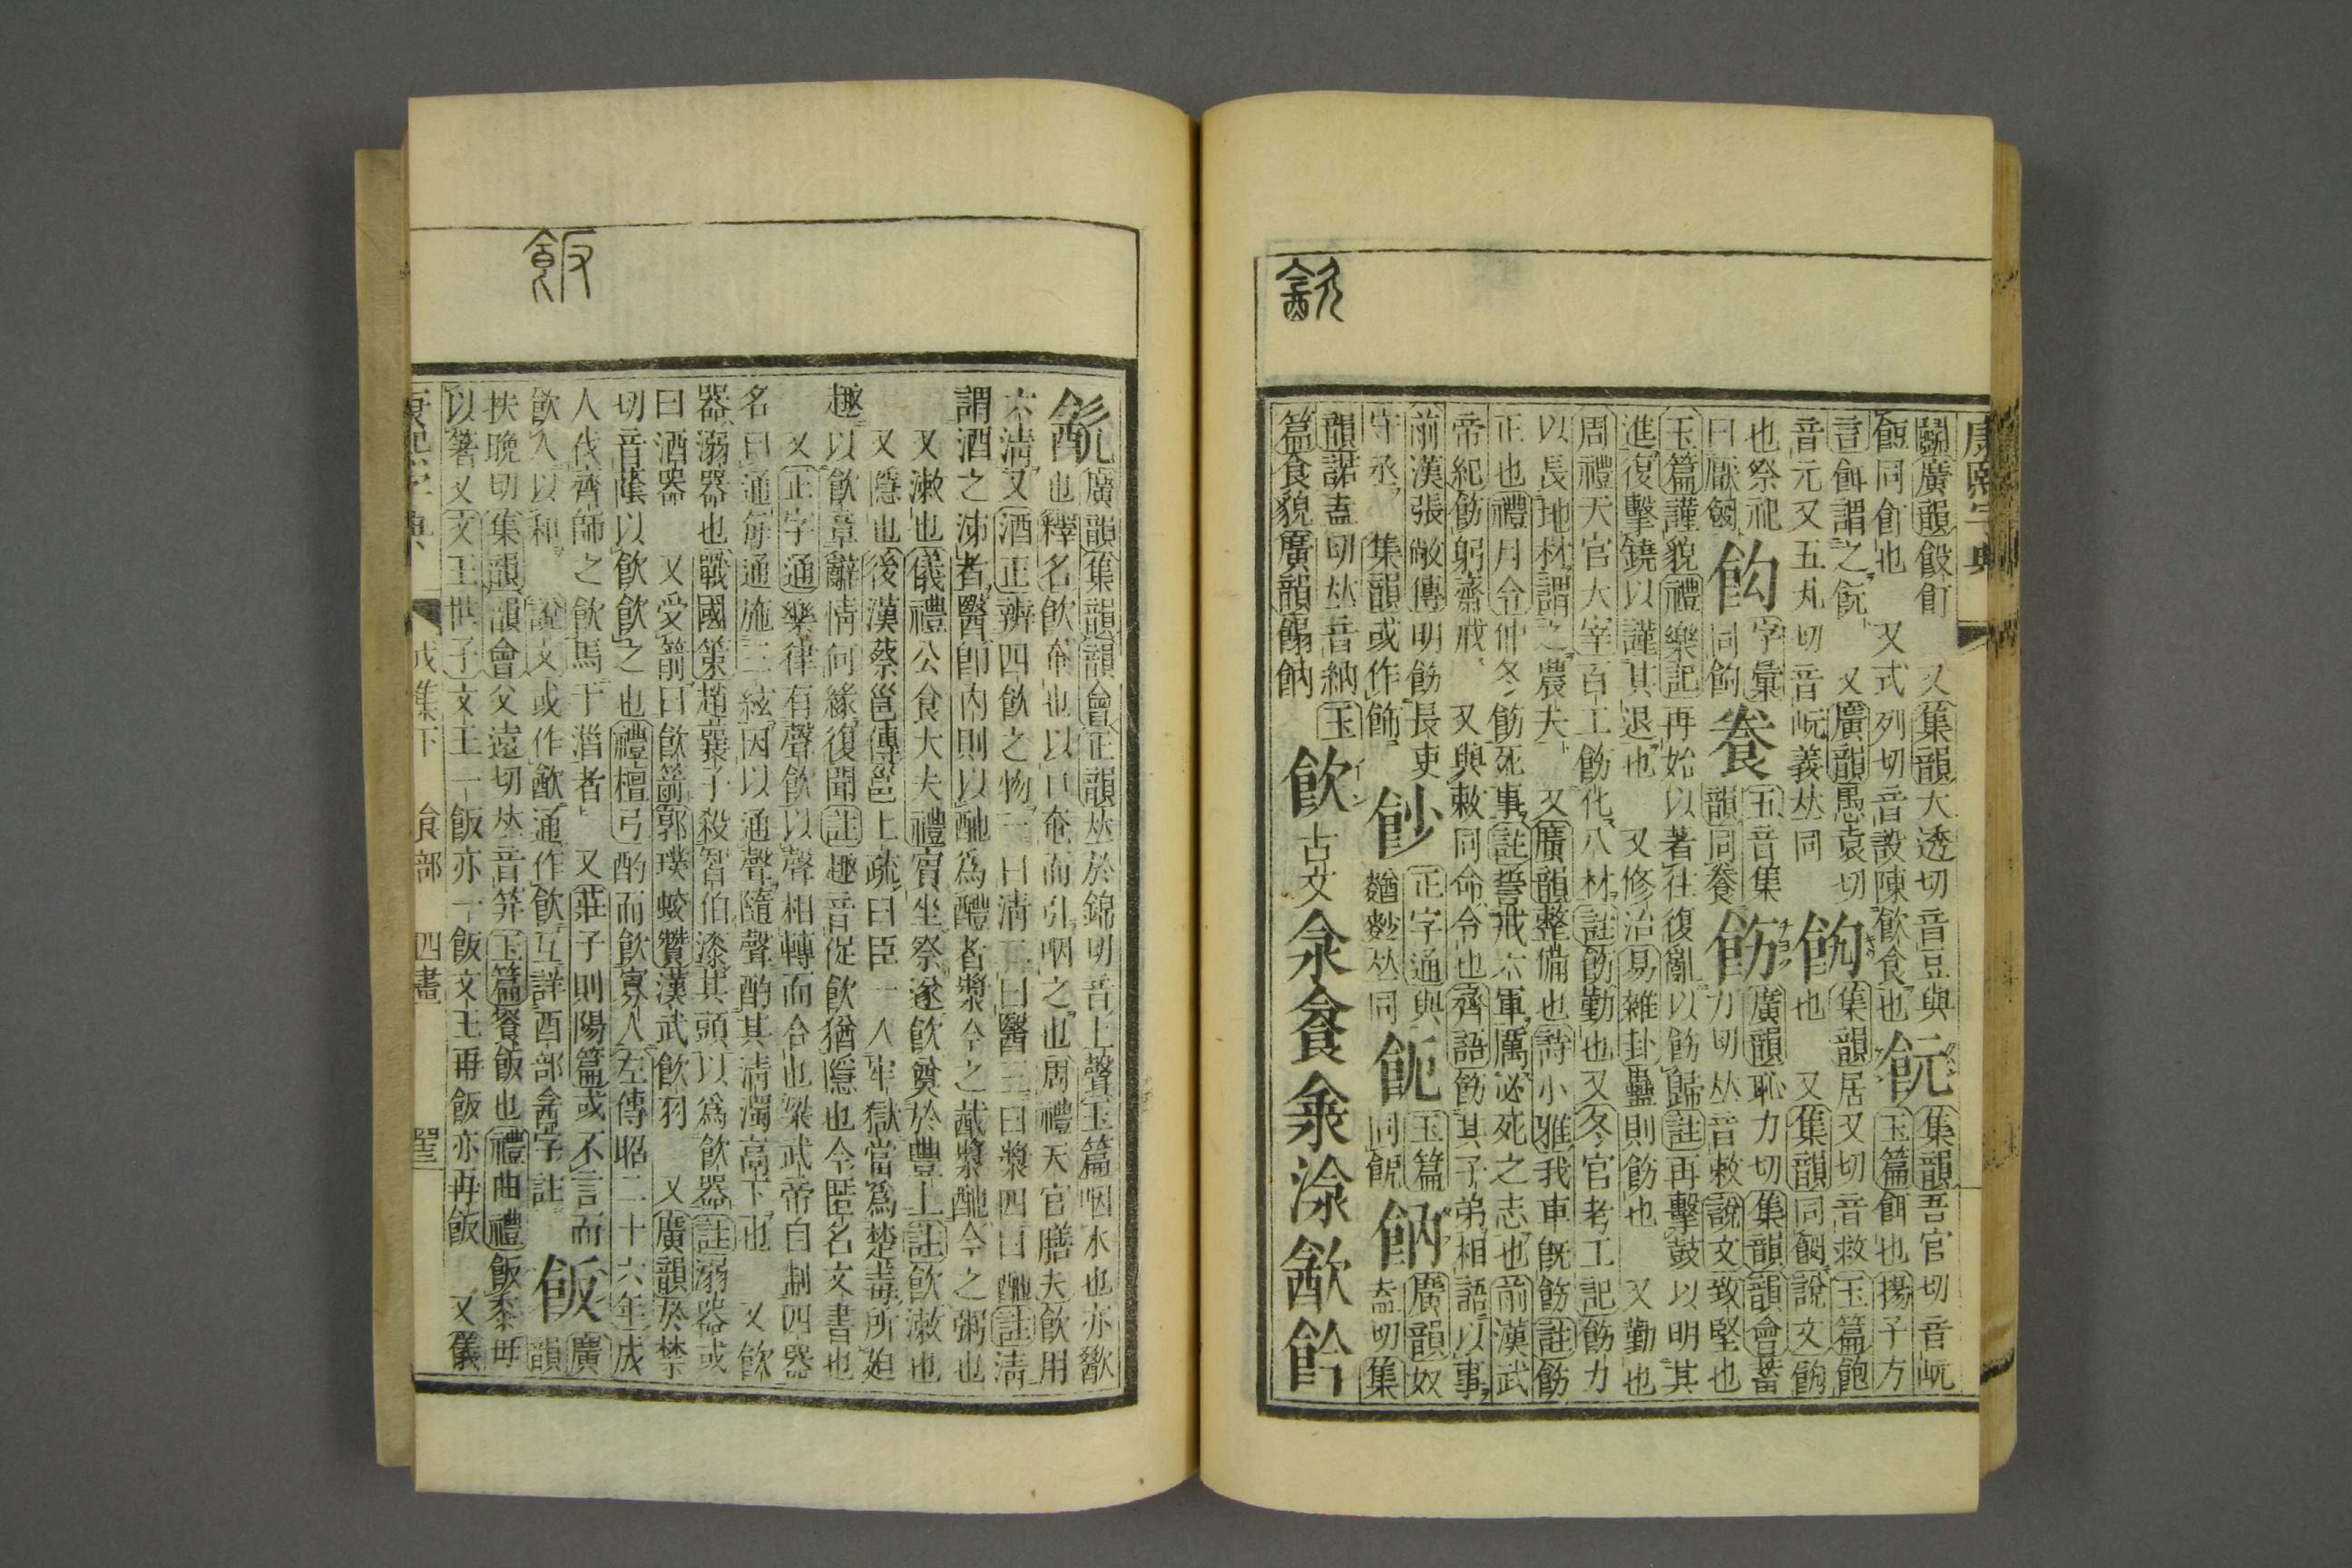 康熙字典
鬬廣韻餖飣 又集韻大透切音豆與
餖同飣也 又式列切音設陳飲食也飦集韻吾官切音岏
言餌謂之飦 又廣韻愚袁切 玉篇餌也揚子方
音元又五丸切音岏義𠀤同
集韻居又切音救玉篇飽
也祭祀 又集韻同𩜁說文
曰厭𩜁 字彙同
五音集韻同餐飭廣韻恥力切集韻韻會蓄
力切𠀤音敕說文致堅也
玉篇謹貌禮樂記再始以著往復亂以飭歸註再擊鼓以明其
進復擊鐃以謹其退也 又修治易雜卦蠱則飭也 又勤也
周禮天官大宰百工飭化八材註飭勤也又冬官考工記飭力
以長地材謂之農夫 又廣韻整備也詩小雅我車旣飭註飭
正也禮月令仲冬飭死事註誓戒六軍厲必死之志也前漢武
帝紀飭躬齋戒 又與敕同命令也齊語飭其子弟相語以事
前漢張敞傳明飭長吏
守丞 集韻或作
正字通與
玉篇
同
廣韻奴
盍切集
韻諾盍切𠀤音納玉
篇食貌廣韻
飲古文
㱃
廣韻集韻韻會正韻𠀤於錦切音上聲玉篇咽水也亦歠
也釋名飲奄也以口奄而引咽之也周禮天官膳夫飲用
六清又酒正辨四飲之物一曰清二曰醫三曰漿四曰酏註清
謂酒之泲者醫卽內則以酏爲醴者漿今之酨漿酏今之粥也
又漱也儀禮公食大夫禮賔坐祭遂飲奠於豐上註飲漱也
又隱也後漢蔡邕傳邕上疏曰臣一入牢獄當爲楚毒所廹
趣以飲章辭情何緣復聞註趣音促飲猶隱也今匿名文書也
又正字通樂律有聲飲以聲相轉而合也梁武帝自制四器
名曰通每通施三絃因以通聲隨聲酌其清濁高下也 又飲
器溺器也戰國策趙襄子殺智伯漆其頭以爲飲器註溺器或
曰酒器 又受箭曰飲箭郭璞蛟贊漢武飲羽 又廣韻於禁
切音蔭以飲飲之也禮檀弓酌而飲寡人左傳昭二十六年成
人伐齊師之飲馬于淄者 又莊子則陽篇或不言而
飲人以和 說文或作㱃通作飲互詳酉部酓字註
飯廣韻
扶晚切集韻韻會父遠切𠀤音笲玉篇餐飯也禮曲禮飯黍毋
以箸又文王世子文王一飯亦一飯文王再飯亦再飯 又儀
康熙字典 戌集下 食部 四畫